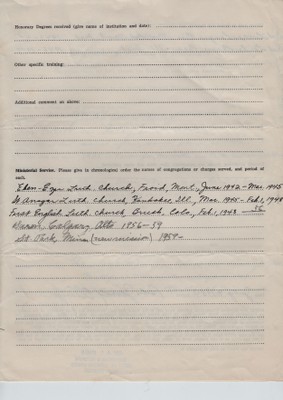 Honorary Degrees received (give name of institution and date):
Other specific training:
Additional comment on above:
Ministerial Service. Please give in chronological order the names of congregations or charges served, and period of
each.
Eben-Ezer Luth. Church, Froid, Mont., June 1942 - Mar. 1945
St Ansgar Luth. Church, Kankakee, Ill., Mar. 1945 - Feb. 1, 1948
First English Luth. Church, Brush, Colo., Feb. 1, 1948 56
Calgary Alta 1956-59
St. Park Minn (new mission) 1959-